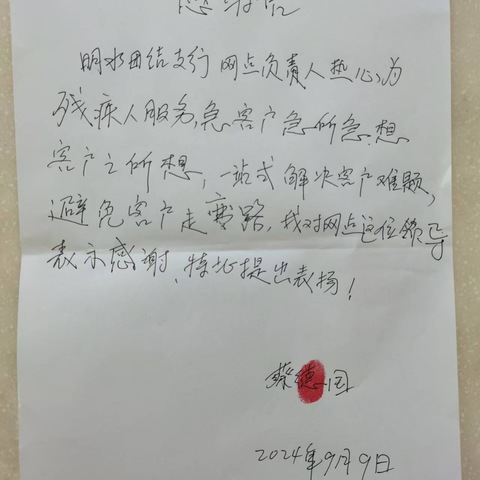 感谢信
明水团结支行网点负责人热心为
残疾人服务,急客户急所急,想
客户之所想,一站式解决客户难题,
避免客户走弯路,我对网点这位领导
表示感谢,特此提出表扬!
德国
2024年9月9日